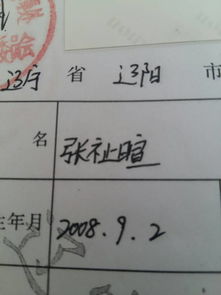 辽宁 省 辽阳 市
名 张祉暄
生年月 2008.9.2